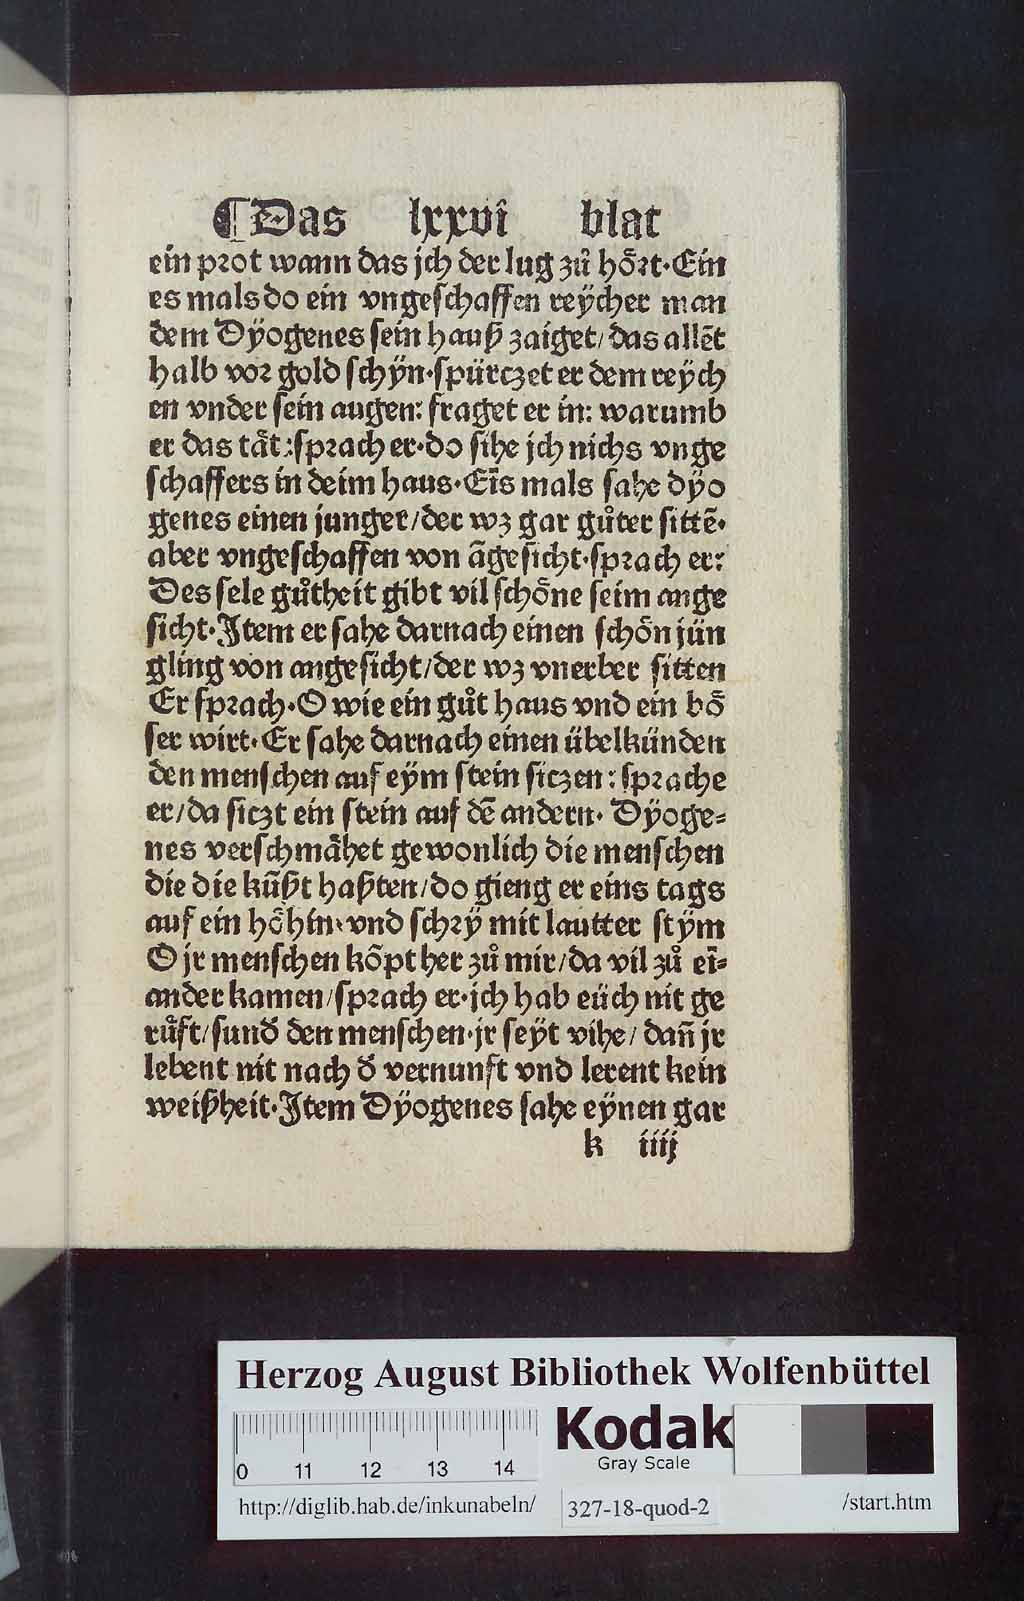 ¶Das lxxvi blat
ein prot wann das jch der lug zů hoͤrt·Ein
es mals do ein vngeschaffen reÿcher man
dem Dÿogenes sein hauß zaiget/das allēt
halb vor gold schÿn·spürczet er dem reÿch
en vnder sein augen: fraget er in: warumb
er das taͤt:sprach er·do sihe jch nichs vnge
schaffers in deim haus·Eīs mals sahe dÿo
genes einen junger/der wz gar gůter sittē·
aber vngeschaffen von āgesicht·sprach er:
Des sele gůtheit gibt vil schoͤne seim ange
sicht·Item er sahe darnach einen schoͤn jün
gling von angesicht/der wz vnerber sitten
Er sprach·O wie ein gůt haus vnd ein boͤ
ser wirt·Er sahe darnach einen übelkünden
den menschen auf eÿm stein siczen:sprache
er/da siczt ein stein auf dē andern· Dÿoge=
nes verschmaͤhet gewonlich die menschen
die die kūßt haßten/do gieng er eins tags
auf ein hoͤhin·vnd schrÿ mit lautter stÿm
O jr menschen kōpt her zů mir/da vil zů eī=
ander kamen/sprach er·jch hab eüch nit ge
růft/sund̕ den menschen·jr seÿt vihe/dañ jr
lebent nit nach d̕ vernunft vnd lerent kein
weißheit·Item Dÿogenes sahe eÿnen gar
k iiij
Herzog August Bibliothek Wolfenbüttel
0 11 12 13 14
Kodak
Gray Scale
http://diglib.hab.de/inkunabeln/ 327-18-quod-2 /start.htm